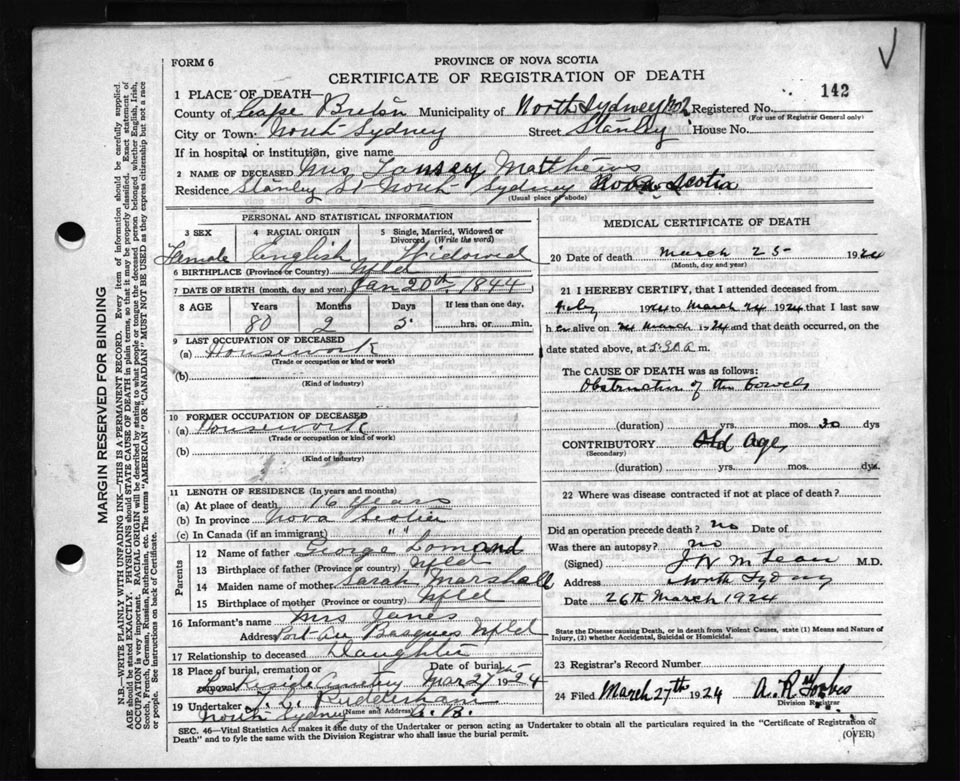 FORM 6
PROVINCE OF NOVA SCOTIA
CERTIFICATE OF REGISTRATION OF DEATH
142
1 PLACE OF DEATH—
County of Cape Breton Municipality of North Sydney Registered No.
(For use of Registrar General only)
City or Town: North Sydney Street Stanley House No.
If in hospital or institution, give name
2 NAME OF DECEASED Mrs Matthews
Residence Stanley St North Sydney Nova Scotia
(Usual place of abode)
PERSONAL AND STATISTICAL INFORMATION
3 SEX 4 RACIAL ORIGIN 5 Single, Married, Widowed or Divorced (Write the word)
Female English Widowed
6 BIRTHPLACE (Province or Country) Nfld
7 DATE OF BIRTH (month, day and year) Jan 20th 1844
8 AGE Years Months Days If less than one day,
80 2 5 hrs. or min.
9 LAST OCCUPATION OF DECEASED
(a) Housework
(Trade or occupation or kind or work)
(b)
(Kind of industry)
10 FORMER OCCUPATION OF DECEASED
(a) Housework
(Trade or occupation or kind of work)
(b)
(Kind of industry)
11 LENGTH OF RESIDENCE (In years and months)
(a) At place of death 16 years
(b) In province Nova Scotia
(c) In Canada (if an immigrant) " "
Parents
12 Name of father George Lomand
13 Birthplace of father (Province or country) Nfld
14 Maiden name of mother Sarah Marshall
15 Birthplace of mother (Province or country) Nfld
16 Informant's name Mrs Janes
Address Port Au Basques Nfld
17 Relationship to deceased Daughter
18 Place of burial, cremation or removal Lakeside Cemetery Date of burial Mar 27th 1924
19 Undertaker
Name and Address
North Sydney C. B.
MEDICAL CERTIFICATE OF DEATH
20 Date of death March 25 1924
(Month, day and year)
21 I HEREBY CERTIFY, that I attended deceased from
1924 to March 24 1924 that I last saw
her alive on 24 March 1924 and that death occurred, on the
date stated above, at a m.
The CAUSE OF DEATH was as follows:
Obstruction of the bowels
(duration) yrs. mos. 30 dys
CONTRIBUTORY Old Age
(Secondary)
(duration) yrs. mos. dys.
22 Where was disease contracted if not at place of death?
Did an operation precede death? no Date of
Was there an autopsy? no
(Signed) M.D.
Address North Sydney
Date 26th March 1924
State the Disease causing Death, or in death from Violent Causes, state (1) Means and Nature of
Injury, (2) whether Accidental, Suicidal or Homicidal.
23 Registrar's Record Number
24 Filed March 27th 1924 A. R. Forbes
Division Registrar
SEC. 46—Vital Statistics Act makes it the duty of the Undertaker or person acting as Undertaker to obtain all the particulars required in the "Certificate of Registration of
Death" and to fyle the same with the Division Registrar who shall issue the burial permit.
(OVER)
MARGIN RESERVED FOR BINDING
N.B.—WRITE PLAINLY WITH UNFADING INK—THIS IS A PERMANENT RECORD. Every item of information should be carefully supplied.
AGE should be stated EXACTLY. PHYSICIANS should STATE CAUSE OF DEATH in plain terms, so that it may be properly classified. Exact statement of
OCCUPATION is very important. RACIAL ORIGIN will be described by stating to what people or tongue the deceased person belonged whether English, Irish,
Scotch, French, German, Russian, Ruthenian, etc. The terms "AMERICAN" or "CANADIAN" MUST NOT BE USED as they express citizenship but not a race
or people. See instructions on back of Certificate.